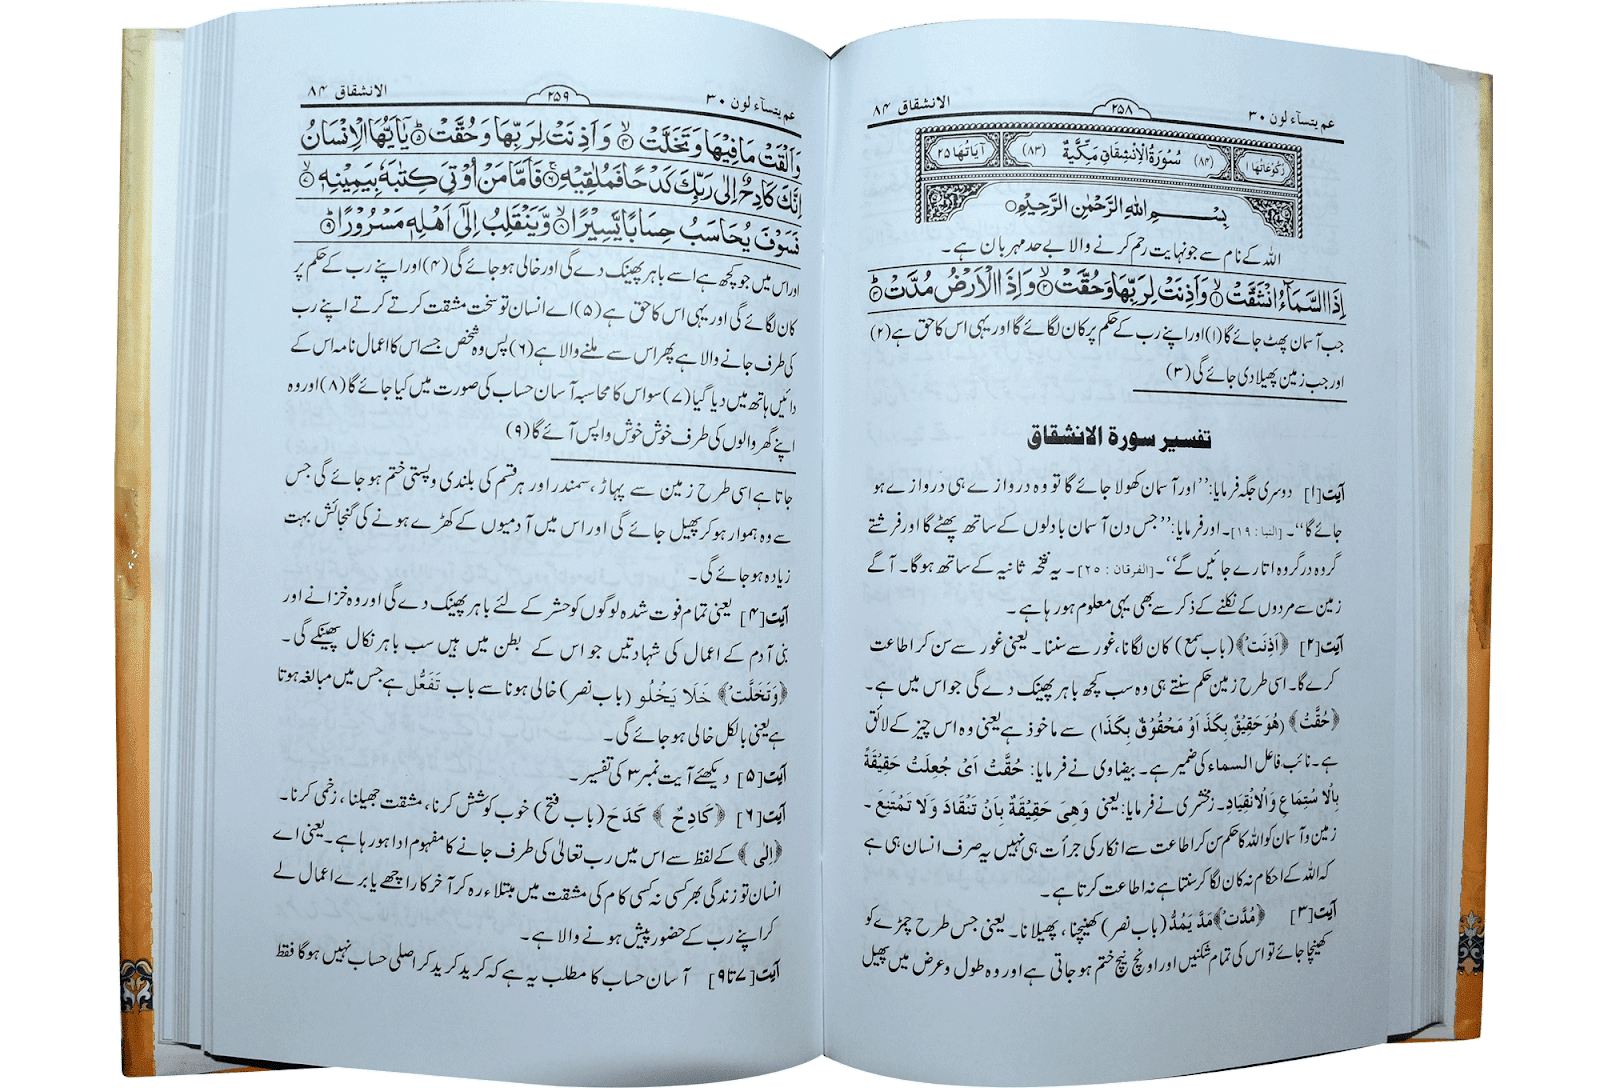 عم يتسآءلون ۳۰
۲۵۸
الانشقاق ۸۴
رکوعاتها ۱
(۸۴) سُوْرَةُ الْاِنْشِقَاقِ مَكِّيَّةٌ (۸۳)
آیاتها ۲۵
بِسْمِ اللهِ الرَّحْمٰنِ الرَّحِيْمِ
اللہ کے نام سے جو نہایت رحم کرنے والا بے حد مہربان ہے۔
اِذَا السَّمَآءُ انْشَقَّتْ ۱ وَاَذِنَتْ لِرَبِّهَا وَحُقَّتْ ۲ وَاِذَا الْاَرْضُ مُدَّتْ ۳
جب آسمان پھٹ جائے گا (۱) اور اپنے رب کے حکم پر کان لگائے گا اور یہی اس کا حق ہے (۲)
اور جب زمین پھیلا دی جائے گی (۳)
تفسیر سورۃ الانشقاق
آیت [۱] دوسری جگہ فرمایا: ’’اور آسمان کھولا جائے گا تو وہ دروازے ہی دروازے ہو
جائے گا‘‘۔ [النبا : ۱۹]۔ اور فرمایا: ’’جس دن آسمان بادلوں کے ساتھ پھٹے گا اور فرشتے
گروہ در گروہ اتارے جائیں گے‘‘۔ [الفرقان : ۲۵]۔ یہ نفخہ ثانیہ کے ساتھ ہوگا۔ آگے
زمین سے مردوں کے نکلنے کے ذکر سے بھی یہی معلوم ہو رہا ہے۔
آیت [۲] ﴿اَذِنَتْ﴾ (باب سمع) کان لگانا، غور سے سننا۔ یعنی غور سے سن کر اطاعت
کرے گا۔ اسی طرح زمین حکم سنتے ہی وہ سب کچھ باہر پھینک دے گی جو اس میں ہے۔
﴿حُقَّتْ﴾ (هُوَ حَقِيْقٌ بِكَذَا اَوْ مَحْقُوْقٌ بِكَذَا) سے ماخوذ ہے یعنی وہ اس چیز کے لائق
ہے۔ نائب فاعل السماء کی ضمیر ہے۔ بیضاوی نے فرمایا: حُقَّتْ اَىْ جُعِلَتْ حَقِيْقَةً
بِالْاسْتِمَاعِ وَالْانْقِيَادِ۔ زمخشری نے فرمایا: یعنی وَهِىَ حَقِيْقَةٌ بِاَنْ تَنْقَادَ وَلَا تَمْتَنِعَ ۔
زمین و آسمان کو اللہ کا حکم سن کر اطاعت سے انکار کی جرأت ہی نہیں یہ صرف انسان ہی ہے
کہ اللہ کے احکام نہ کان لگا کر سنتا ہے نہ اطاعت کرتا ہے۔
آیت [۳] ﴿مُدَّتْ﴾ مَدَّ يَمُدُّ (باب نصر) کھینچنا، پھیلانا۔ یعنی جس طرح چمڑے کو
کھینچا جائے تو اس کی تمام شکنیں اور اونچ نیچ ختم ہو جاتی ہے اور وہ طول و عرض میں پھیل
عم يتسآءلون ۳۰
۲۵۹
الانشقاق ۸۴
وَاَلْقَتْ مَا فِيْهَا وَتَخَلَّتْ ۴ وَاَذِنَتْ لِرَبِّهَا وَحُقَّتْ ۵ يٰۤاَيُّهَا الْاِنْسَانُ
اِنَّكَ كَادِحٌ اِلٰى رَبِّكَ كَدْحًا فَمُلٰقِيْهِ ۶ فَاَمَّا مَنْ اُوْتِيَ كِتٰبَهٗ بِيَمِيْنِهٖ ۷
فَسَوْفَ يُحَاسَبُ حِسَابًا يَّسِيْرًا ۸ وَّيَنْقَلِبُ اِلٰۤى اَهْلِهٖ مَسْرُوْرًا ۹
اور اس میں جو کچھ ہے اسے باہر پھینک دے گی اور خالی ہو جائے گی (۴) اور اپنے رب کے حکم پر
کان لگائے گی اور یہی اس کا حق ہے (۵) اے انسان تو سخت مشقت کرتے کرتے اپنے رب
کی طرف جانے والا ہے پھر اس سے ملنے والا ہے (۶) پس وہ شخص جسے اس کا اعمال نامہ اس کے
دائیں ہاتھ میں دیا گیا (۷) سو اس کا محاسبہ آسان حساب کی صورت میں کیا جائے گا (۸) اور وہ
اپنے گھر والوں کی طرف خوش خوش واپس آئے گا (۹)
جاتا ہے اسی طرح زمین سے پہاڑ، سمندر اور ہر قسم کی بلندی و پستی ختم ہو جائے گی جس
سے وہ ہموار ہو کر پھیل جائے گی اور اس میں آدمیوں کے کھڑے ہونے کی گنجائش بہت
زیادہ ہو جائے گی۔
آیت [۴] یعنی تمام فوت شدہ لوگوں کو حشر کے لئے باہر پھینک دے گی اور وہ خزانے اور
بنی آدم کے اعمال کی شہادتیں جو اس کے بطن میں ہیں سب باہر نکال پھینکے گی۔
﴿وَتَخَلَّتْ﴾ خَلَا يَخْلُو (باب نصر) خالی ہونا سے باب تَفَعُّل ہے جس میں مبالغہ ہوتا
ہے یعنی بالکل خالی ہو جائے گی۔
آیت [۵] دیکھئے آیت نمبر ۳ کی تفسیر۔
آیت [۶] ﴿كَادِحٌ﴾ كَدَحَ (باب فتح) خوب کوشش کرنا، مشقت جھیلنا، زخمی کرنا۔
﴿الٰی﴾ کے لفظ سے اس میں رب تعالیٰ کی طرف جانے کا مفہوم ادا ہو رہا ہے۔ یعنی اے
انسان تو زندگی بھر کسی نہ کسی کام کی مشقت میں مبتلاء رہ کر آخر کار اچھے یا برے اعمال لے
کر اپنے رب کے حضور پیش ہونے والا ہے۔
آیت [۷ تا ۹] آسان حساب کا مطلب یہ ہے کہ کرید کرید کر اصلی حساب نہیں ہوگا فقط